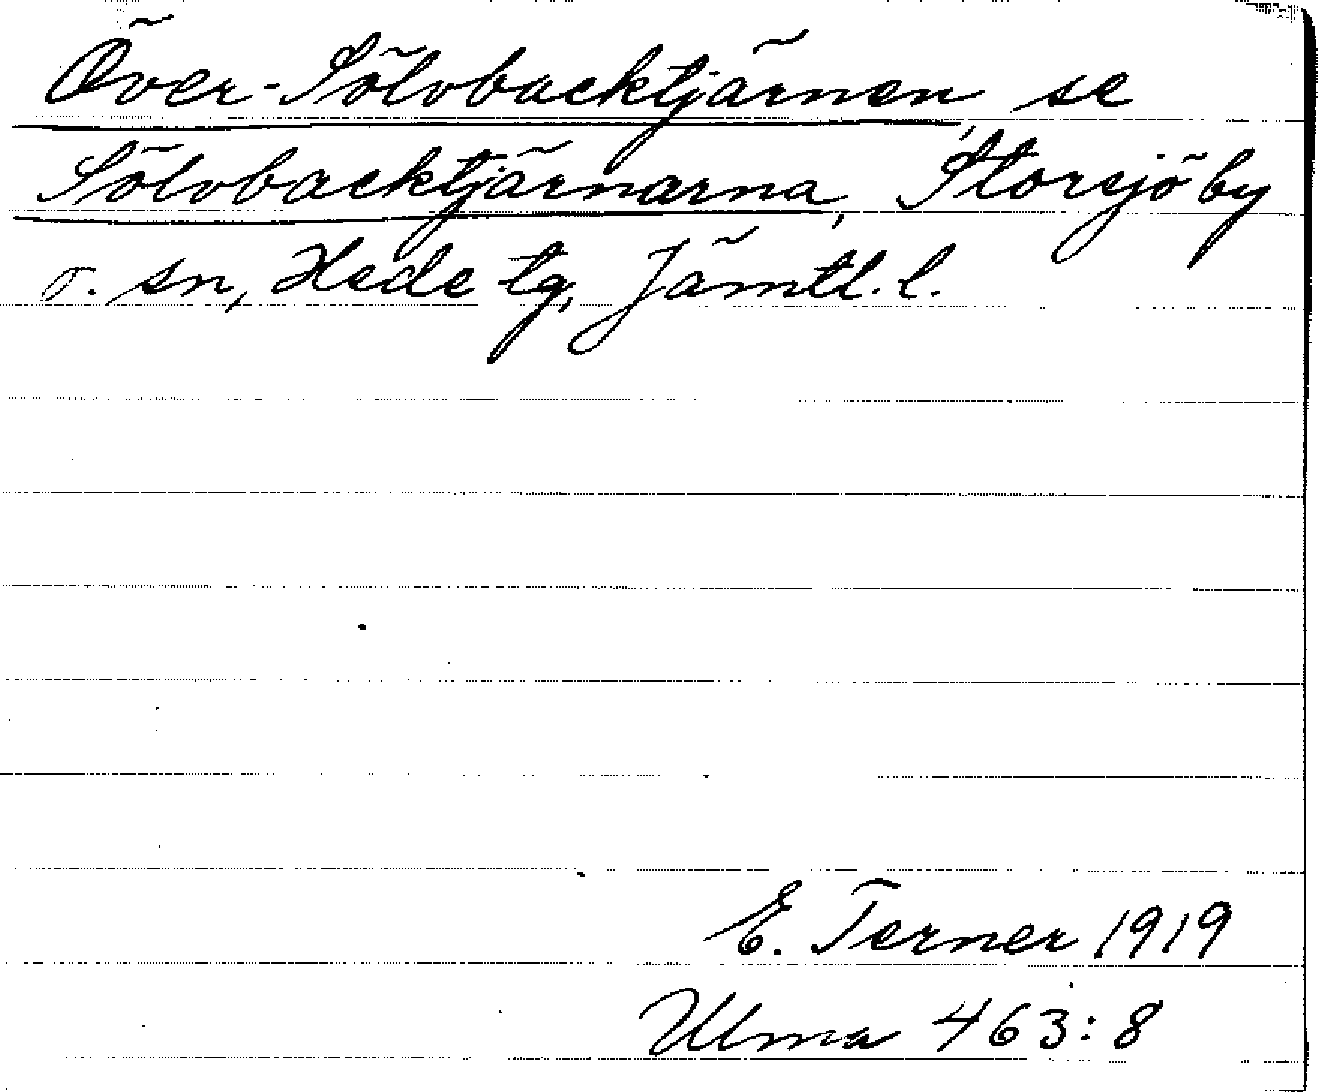 Över-Sölvbacktjärnen se
Sölvbacktjärnarna, Storsjö by
o. sn, Hede tg, Jämtl. l.
E. Terner 1919
Ulma 463:8